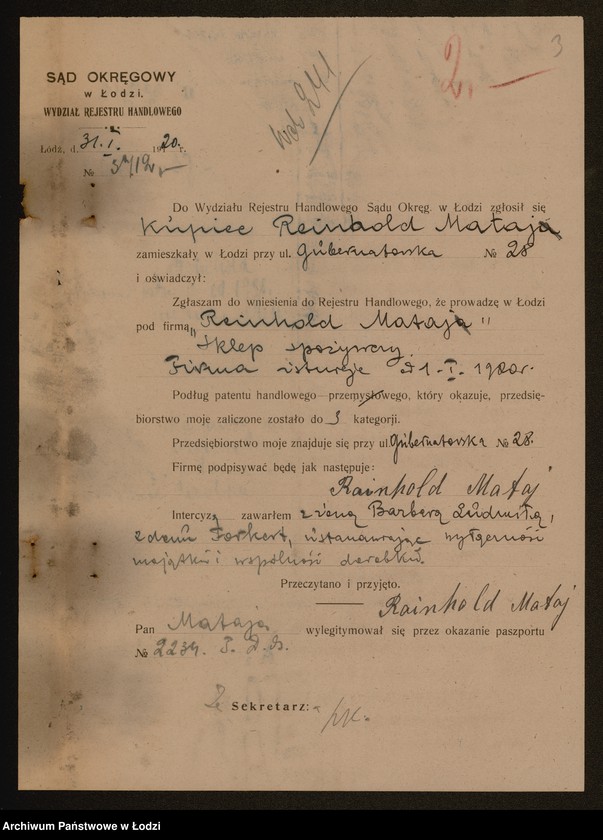 3
2. —
SĄD OKRĘGOWY
w Łodzi.
WYDZIAŁ REJESTRU HANDLOWEGO
Łódź, d. 31. I. 1920. r.
№
Do Wydziału Rejestru Handlowego Sądu Okręg. w Łodzi zgłosił się
Kupiec Reinhold Mataja
zamieszkały w Łodzi przy ul. Gubernatorska № 28
i oświadczył:
Zgłaszam do wniesienia do Rejestru Handlowego, że prowadzę w Łodzi
pod firmą „Reinhold Mataja"
sklep spożywczy.
Firma istnieje od 1-I-1920r.
Podług patentu handlowego—przemysłowego, który okazuje, przedsię-
biorstwo moje zaliczone zostało do 3 kategorji.
Przedsiębiorstwo moje znajduje się przy ul. Gubernatorska № 28.
Firmę podpisywać będę jak następuje:
Rainhold Mataj
Intercyzą zawarłem z żoną Barbarą Ludmiłą,
z domu Forkert, ustanawiając wyłączność
majątku i wspólność dorobku.
Przeczytano i przyjęto.
Rainhold Mataj
Pan Mataja wylegitymował się przez okazanie paszportu
№ 2239.
Sekretarz:
Archiwum Państwowe w Łodzi